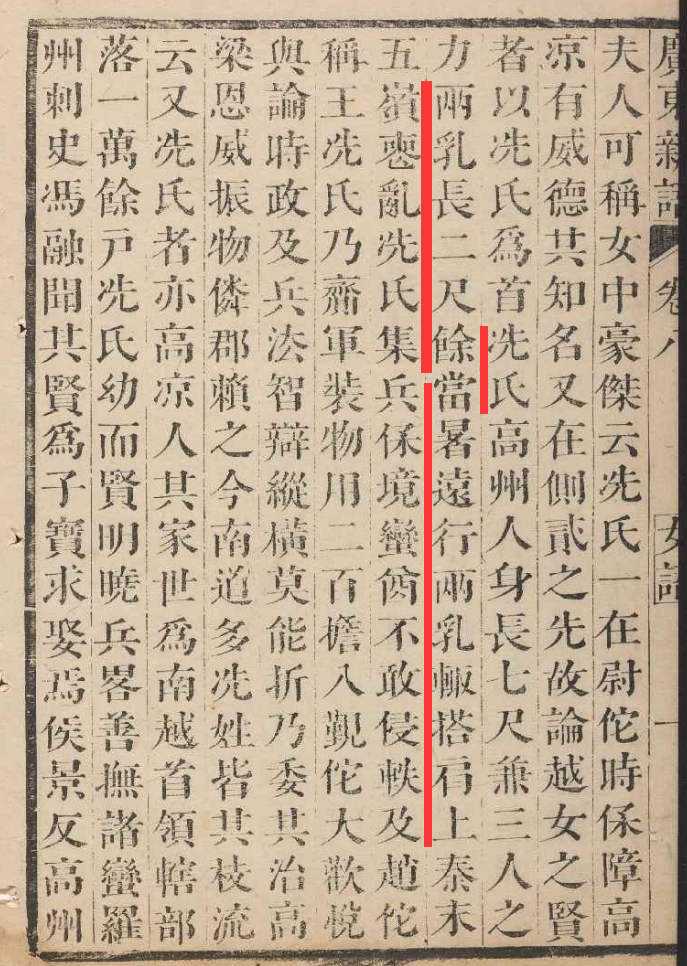 廣東新語 卷八 女語 一
夫人可稱女中豪傑云冼氏一在尉佗時保障高
凉有威德其知名又在側貳之先故論越女之賢
者以冼氏爲首冼氏高州人身長七尺兼三人之
力兩乳長二尺餘當暑遠行兩乳輙搭肩上秦末
五嶺喪亂冼氏集兵保境蠻酋不敢侵軼及趙佗
稱王冼氏乃齎軍裝物用二百擔入覲佗大歡悅
與論時政及兵法智辯縱橫莫能折乃委其治高
梁恩威振物鄰郡賴之今南道多冼姓皆其枝流
云又冼氏者亦高凉人其家世爲南越首領轄部
落一萬餘戸冼氏幼而賢明曉兵畧善撫諸蠻羅
州刺史馮融聞其賢爲子寶求娶焉侯景反高州